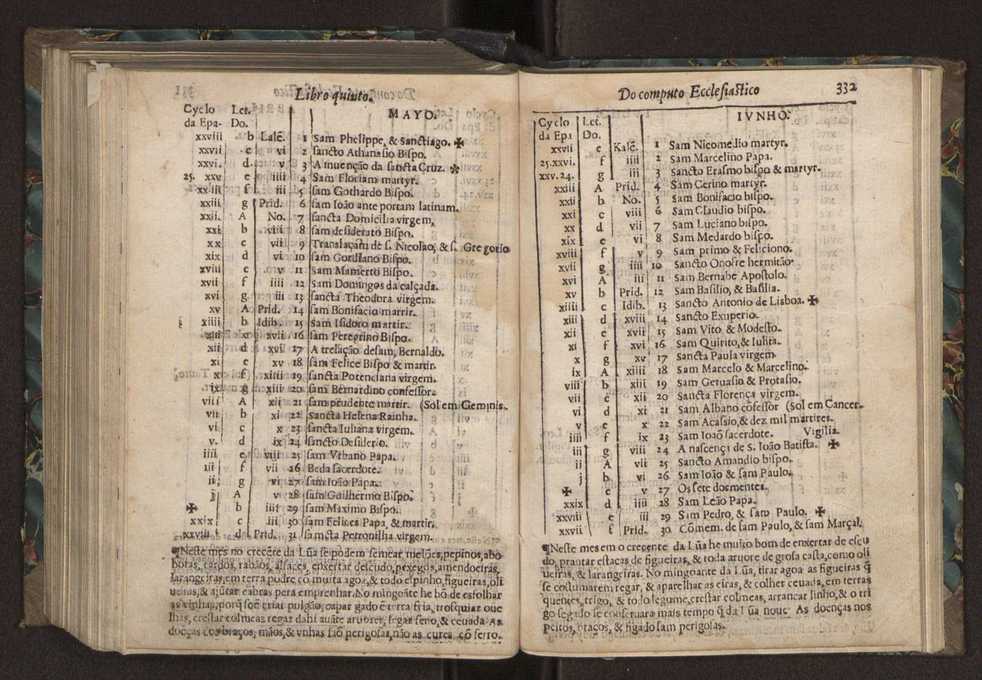 Libro quinto.
MAYO.
Cyclo Let.
da Epa- Do.
xxviii b Kalẽ. 1 Sam Phelippe, & sanctiago. ✠
xxvii e vi 2 sancto Athanasio Bispo.
xxvi. d v 3 A inuenção da sancta Cruz. ✠
25. xxv e iiii 4 Sam Floriam martyr.
xxiiii f iii 5 sam Gothardo Bispo.
xxiii g Prid. 6 sam Ioão ante portam latinam.
xxii. A No. 7 sancta Domicilia virgem,
xxi b viii 8 sam desiderato Bispo.
xx c vii 9 Translaçam de s. Nicolao, & s. Gregorio
xix d vi 10 sam Gordiano Bispo.
xviii e v 11 sam Mamerto Bispo.
xvii f iiii 12 sam Domingos da calçada.
xvi g iii 13 sancta Theodora virgem.
xv A Prid. 14 sam Bonifacio martir.
xiiii b Idib. 15 Sam Isidoro martir.
xiii c xvii 16 sam Peregrino Bispo.
xii d xvi 17 A trelação desam, Bernaldo.
xi e xv 18 sam Felice Bispo & martir.
x f xiiii 19 sancta Potenciana virgem.
ix g xiii 20 sam Bernardino confessor.
viii A xii 21 sam prudente martir. (Sol em Geminis.
vii b xi 22 Sancta Helena Rainha.
vi c x 23 sancta Iuliana virgem.
v. d ix 24 sancto Desiderio.
iiii e viii 25 sam Vrbano Papa.
iii f vii 26 Beda sacerdote.
ii g vi 27 sam Ioão Papa.
j A v 28 sam Guilhermo Bispo.
✠ b iiii 29 sam Maximo Bispo.
xxix c iii 30 sam Felices Papa, & martir.
xxviii d Prid. 31 sancta Petronilha virgem.
¶Neste mes no crecẽte da Lũa se podem semear melões, pepinos, abo
boras, cardos, rabãos, alfaces, enxertar descudo, pexegos, amendoeiras,
larangeiras, em terra pudre cõ muita agoa, & todo espinho, figueiras, oli
ueiras, & ajũtar cabras pera emprenhar. No mingoãte he bõ de esfolhar
as vinhas, porq̃ soẽ criar pulgão, capar gado ẽ terra fria, trosquiar oue
lhas, crestar colmeas regar dahi auãte aruores, segar feno, & ceuada. As
doẽças dos braços, mãos, & vnhas são perigosas, não as cures cõ ferro.
Do computo Ecclesiastico 332
IVNHO.
Cyclo Let.
da Epa Do.
xxvii e Kalẽ. 1 Sam Nicomedio martyr.
25.xxvi. f iiii 2 Sam Marcelino Papa.
xxv.24. g iii 3 Sancto Erasmo bispo & martyr.
xxiii A Prid. 4 Sam Cerino martyr.
xxii b No. 5 Sam Bonifacio bispo.
xxi c viii 6 Sam Claudio bispo.
xx d vii 7 Sam Luciano bispo.
xix e vi 8 Sam Medardo bispo.
xviii f v 9 Sam primo & Feliciono.
xvii g iiii 10 Sancto Onofre hermitão.
xvi A iii 11 Sam Bernabe Apostolo.
xv b Prid. 12 Sam Basilio, & Basilia.
xiiii c Idib. 13 Sancto Antonio de Lisboa. ✠
xiii d xviii 14 Sancto Exuperio.
xii e xvii 15 Sam Vito, & Modesto.
xi f xvi 16 Sam Quirito, & Iulita.
x g xv 17 Sancta Paula virgem
ix A xiiii 18 Sam Marcelo & Marcelino.
viii b xiii 19 Sam Geruasio & Protasio.
vii c xii 20 Sancta Florença virgem.
vi d xi 21 Sam Albano cõfessor (Sol em Cancer.
v e x 22 Sam Acasio, & dez mil martires.
iiii f ix 23 Sam Ioaõ sacerdote. Vigilia.
iii g viii 24 A nascença de S. Ioão Batista. ✠
ii A vii 25 Sancto Amandio bispo.
j b vi 26 Sam Ioão & sam Paulo.
✠ c v 27 Os sete dormentes.
xxix d iiii 28 Sam Leão Papa.
xxviii e iii 29 Sam Pedro, & sam Paulo. ✠
xxvii f Prid. 30 Cõmem. de sam Paulo, & sam Marçal.
¶Neste mes em o crecente da Lũa he muito bom de enxertar de escu
do, prantar estacas de figueiras, & toda aruore de grosa casta, como oli
ueiras, & larangeiras. No mingoante da Lũa, tirar agoa as figueiras q̃
se costumarem regar, & aparelhar as eiras, & colher ceuada, em terras
quentes, trigo, & todo legume, crestar colmeas, arrancar linho, & o tri
go segado se conseruara mais tempo q̃ da lũa noua. As doenças nos
peitos, braços, & figado sam perigosas.